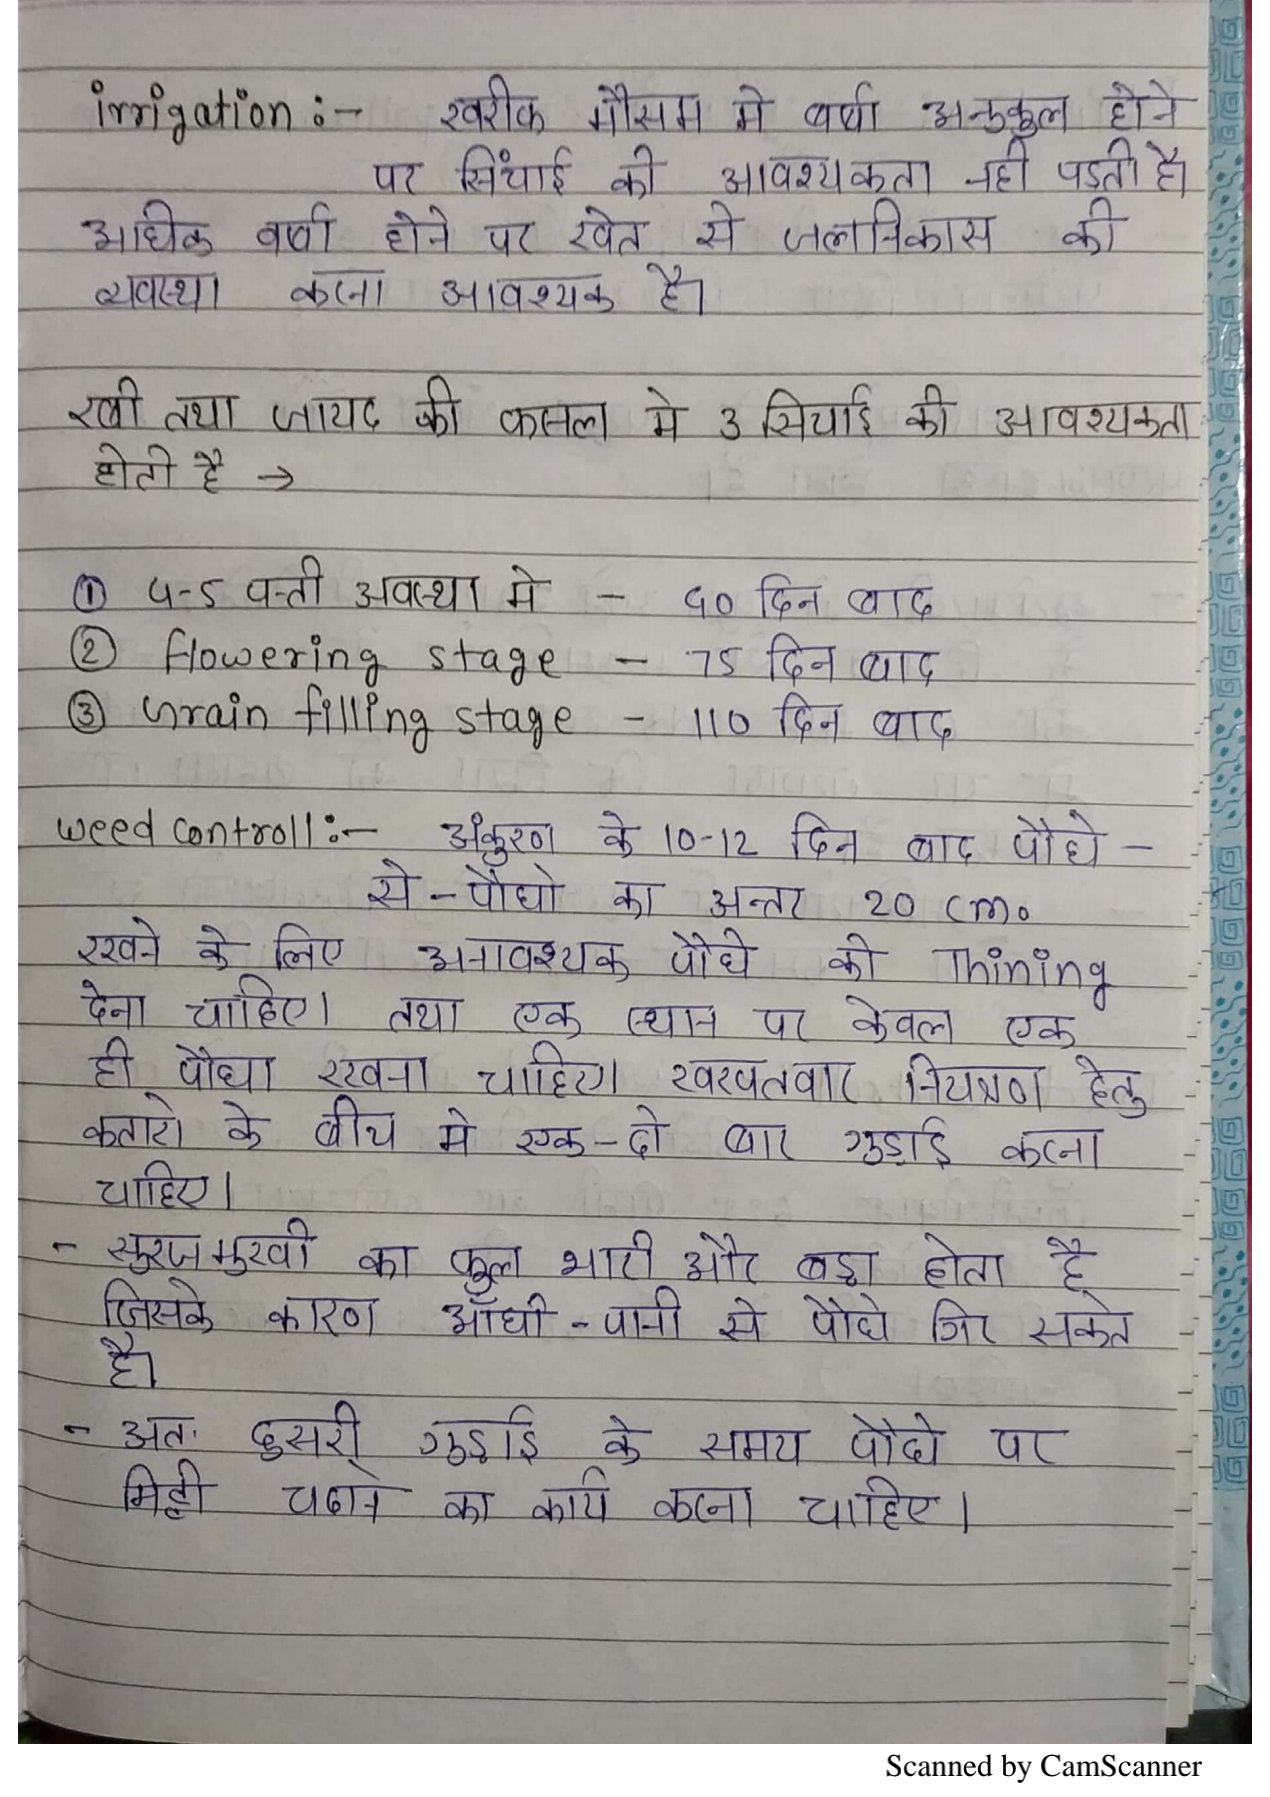 irrigation :- खरीफ मौसम मे वर्षा अनुकुल होने
पर सिंचाई की आवश्यकता नही पडती है।
अधिक वर्षा होने पर खेत से जलनिकास की
व्यवस्था करना आवश्यक है।
रबी तथा जायद की फसल मे 3 सिचाई की आवश्यकता
होती है →
① 4-5 पत्ती अवस्था मे - 40 दिन बाद
② flowering stage - 75 दिन बाद
③ Grain filling stage - 110 दिन बाद
weed controll :- अंकुरण के 10-12 दिन बाद पौधे -
से - पौधो का अन्तर 20 cm.
रखने के लिए अनावश्यक पौधे को Thining
देना चाहिए। तथा एक स्थान पर केवल एक
ही पौधा रखना चाहिए। खरपतवार नियत्रण हेतु
कतारो के बीच मे एक-दो बार गुडाई करना
चाहिए।
- सुरजमुखी का फुल भारी और बडा होता है
जिसके कारण आँधी - पानी से पौधे गिर सकते
है।
- अतः दुसरी गुडाई के समय पौधे पर
मिट्टी चढाने का कार्य करना चाहिए।
Scanned by CamScanner